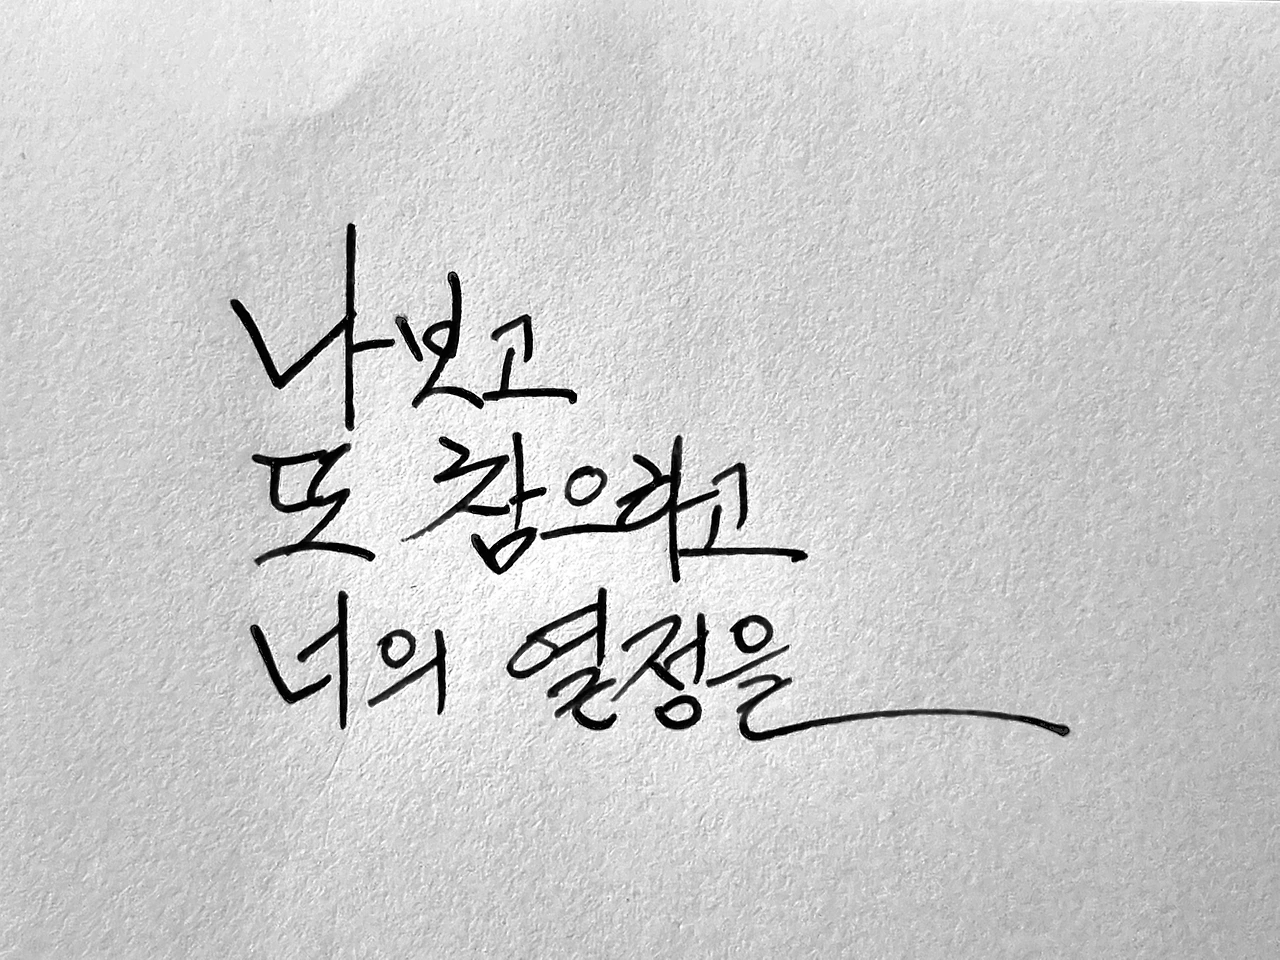 나보고
또 참으라고
너의 열정을